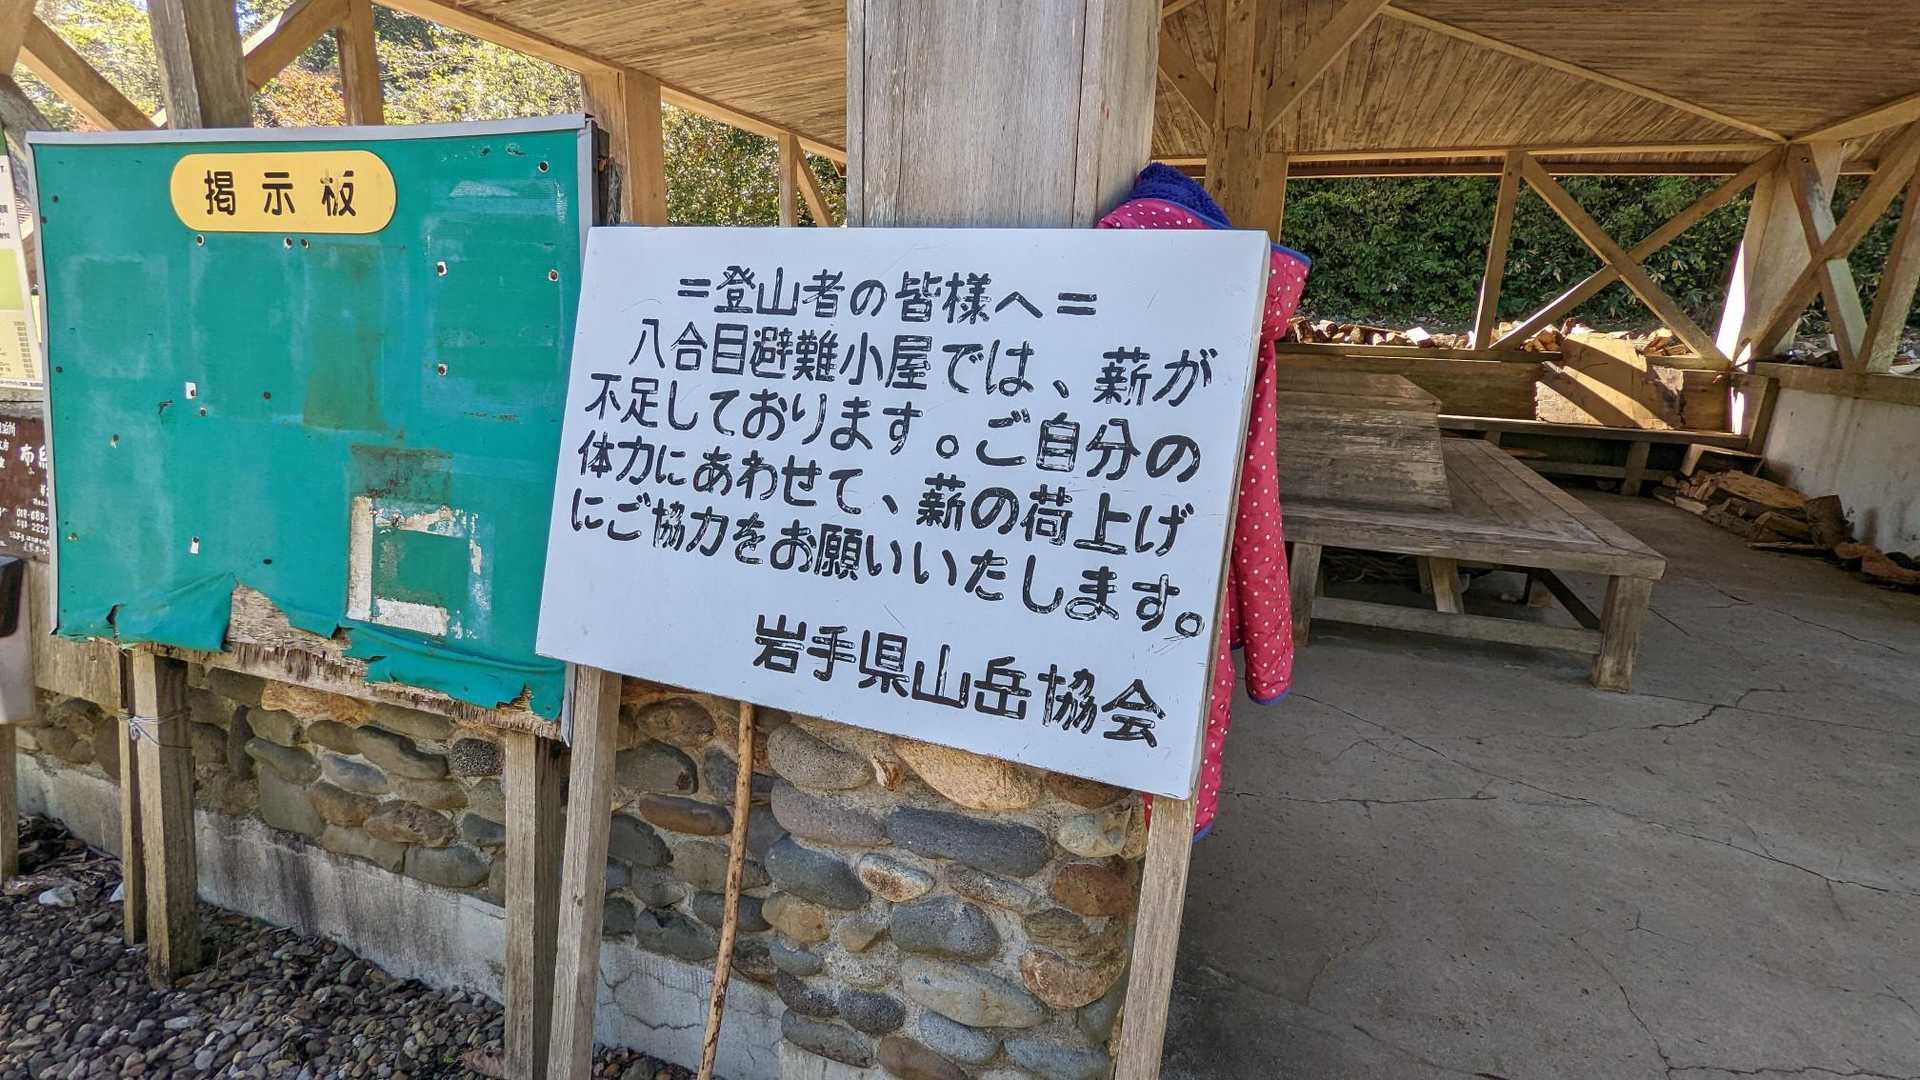 掲示板
=登山者の皆様へ=
八合目避難小屋では、薪が
不足しております。ご自分の
体力にあわせて、薪の荷上げ
にご協力をお願いいたします。
岩手県山岳協会